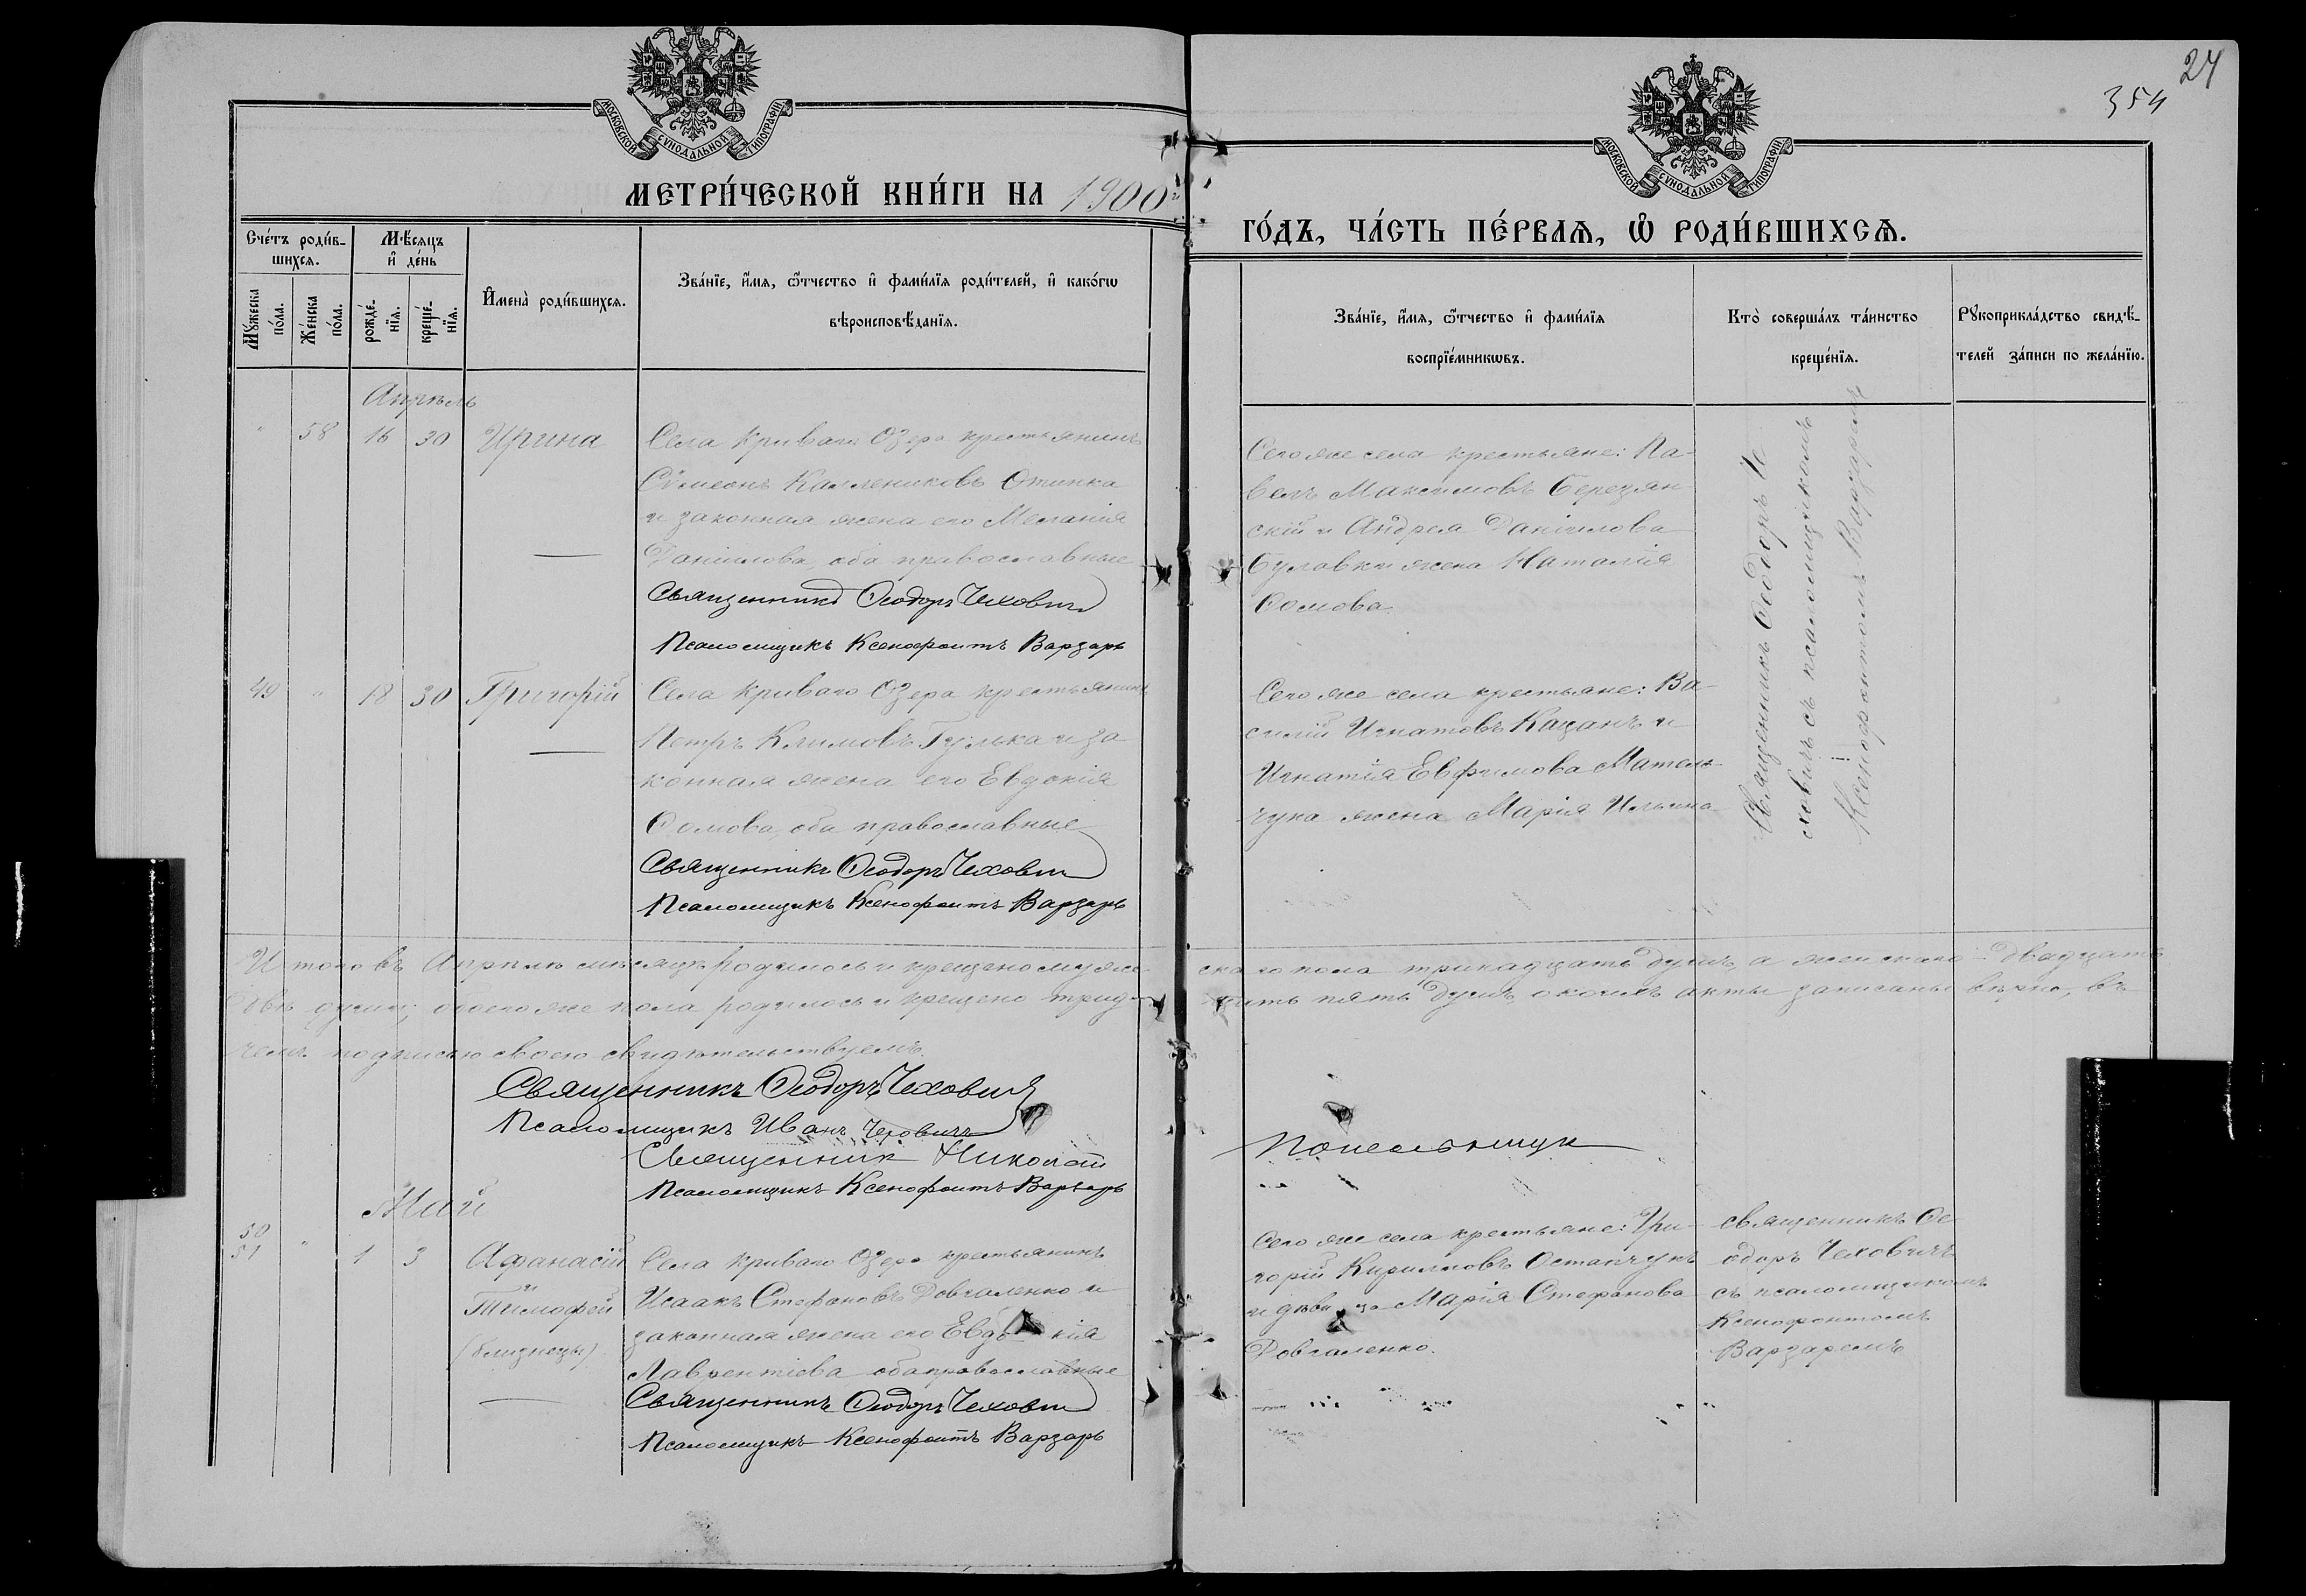 24
354
МОСКОВСКОЙ СУНОДАЛЬНОЙ ТИПОГРАФІИ
МОСКОВСКОЙ СУНОДАЛЬНОЙ ТИПОГРАФІИ
МЕТРИ́ЧЕСКОЙ КНИ́ГИ НА 1900й
ГО́ДЪ, ЧА́СТЬ ПЕ́РВАѦ, Ѡ РОДИ́ВШИХСѦ.
Сче́тъ роди́в-
шихсѧ.
Мѣ́сяцъ
и҆ де́нь
Мꙋ́жеска
по́ла.
Же́нска
по́ла.
рожде́-
нїѧ.
креще́-
нїѧ.
И҆мена̀ роди́вшихсѧ.
Зва́нїе, и҆́мѧ, ѻ҆́тчество и҆ фами́лїѧ роди́телей, и҆ како́гѡ
вѣроисповѣ́данїѧ.
Зва́нїе, и҆́мѧ, ѻ҆́тчество и҆ фами́лїѧ
воспрїе́мникѡвъ.
Кто̀ соверша́лъ та́инство
креще́нїѧ.
Рꙋкоприкла́дство свидѣ́-
телей за́писи по жела́нїю.
Апрѣль
" 58 16 30 Ирина
Села Криваго Озера крестьянинъ
Сѵмеонъ Каллениковъ Отинка
и законная жена его Меланія
Даніилова, оба православные
Священникъ Ѳеодоръ Чеховичъ
Псаломщикъ Ксенофонтъ Варзарь
Сего же села крестьяне: Па-
велъ Максимовъ Березян
скій и Андрея Даніилова
Булавки жена Наталія
Ѳомова.
Священникъ Ѳеодоръ Че
ховичъ съ псаломщикомъ
Ксенофонтомъ Варзаремъ
49 " 18 30 Григорій
Села Криваго Озера крестьянинъ
Петръ Климовъ Гулька и за
конная жена его Евдокія
Ѳомова, оба православные
Священникъ Ѳеодоръ Чеховичъ
Псаломщикъ Ксенофонтъ Варзарь
Сего же села крестьяне: Ва-
силій Игнатовъ Кацанъ и
Игнатія Евфимова Матель-
чука жена Марія Ильина
Итого въ Апрѣлѣ мѣсяцѣ родилось и крещено муже- скаго пола тринадцать душъ, а женскаго - двадцать
двѣ души; обоего же пола родилось и крещено трид- цать пять душъ, о коихъ акты записаны вѣрно, въ
чемъ подписью своею свидѣтельствуемъ.
Священникъ Ѳеодоръ Чеховичъ
Псаломщикъ Иванъ Чеховичъ
Священник Николай Попельнищук
Псаломщикъ Ксенофонтъ Варзарь
Май
50
51 " 1 3 Аѳанасій
и
Тимофей
(близнецы)
Села Криваго Озера крестьянинъ
Исаакъ Стефановъ Довгаленко и
законная жена его Евдокія
Лаврентіева оба православные
Священникъ Ѳеодоръ Чеховичъ
Псаломщикъ Ксенофонтъ Варзарь
Сего же села крестьяне: Гри-
горій Кирилловъ Остапчукъ
и дѣвица Марія Стефанова
Довгаленко.
Священникъ Ѳе-
одоръ Чеховичъ
съ псаломщикомъ
Ксенофонтомъ
Варзаремъ